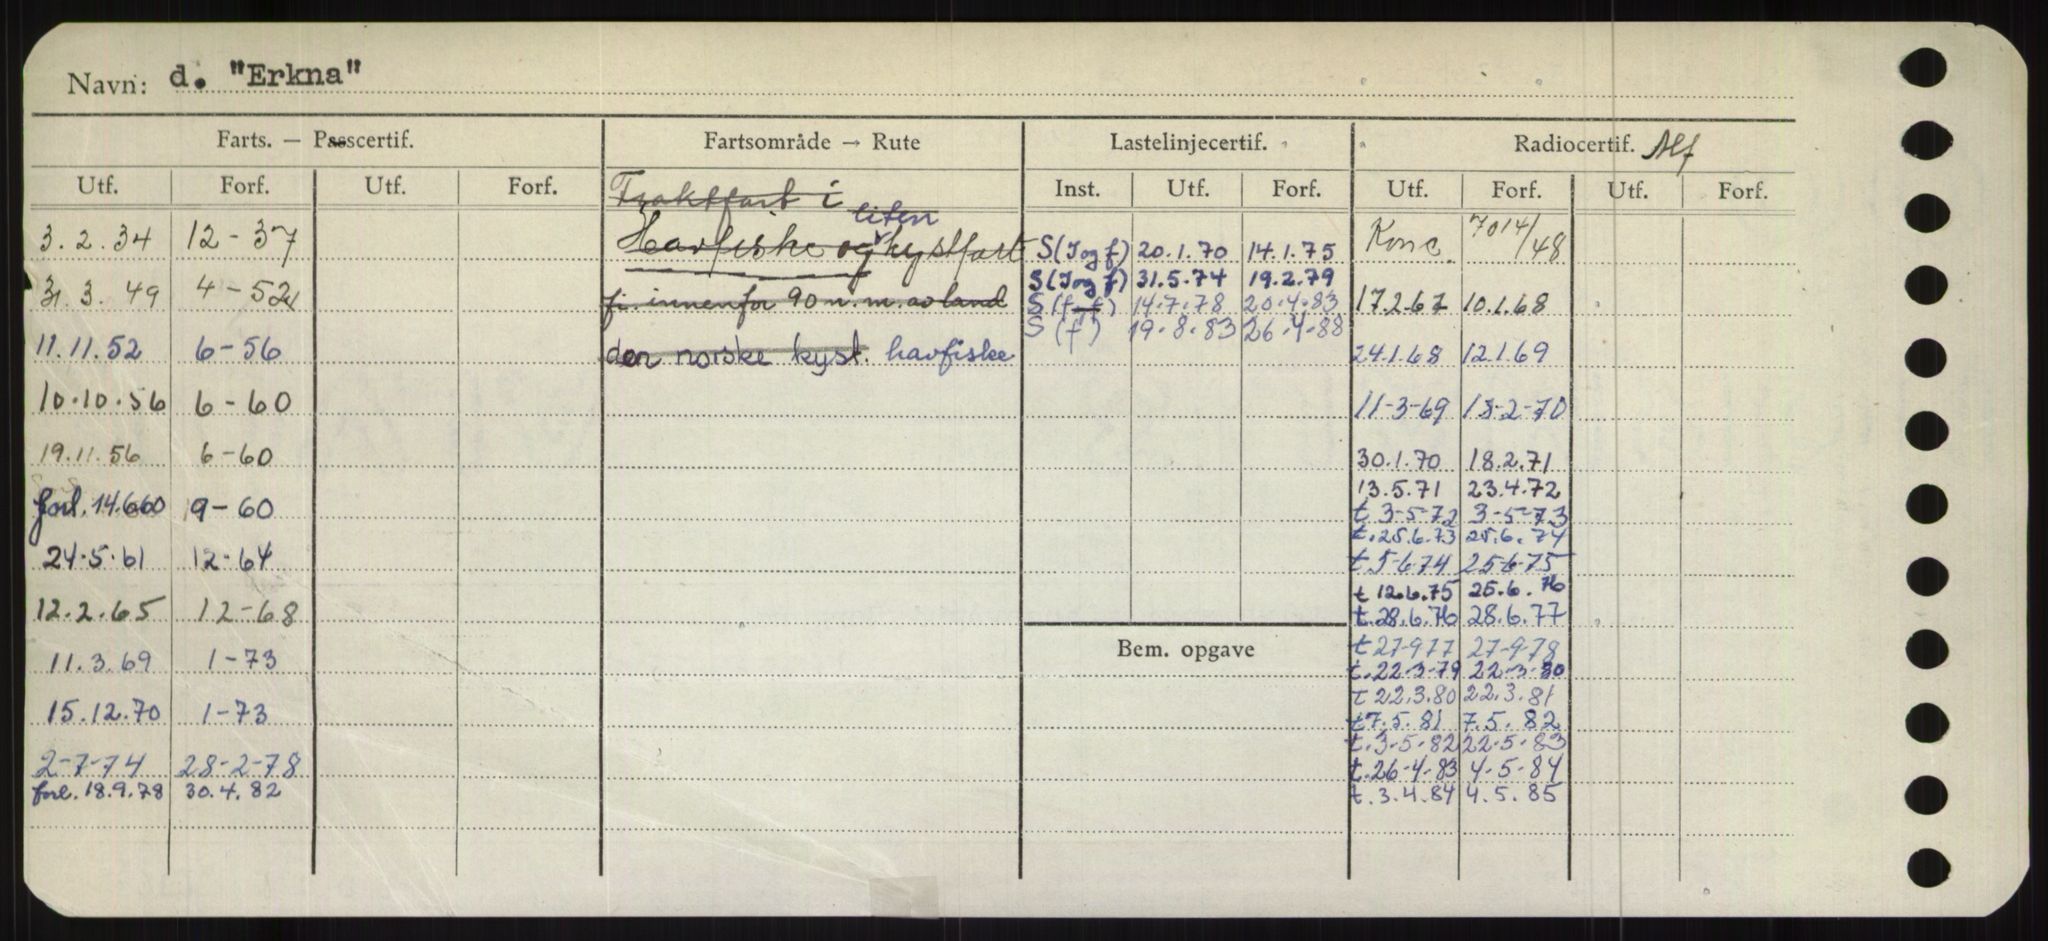 Navn: d. "Erkna"
Farts. — Passcertif. Fartsområde → Rute Lastelinjecertif. Radiocertif. Alf
Utf. Forf. Utf. Forf. Inst. Utf. Forf. Utf. Forf. Utf. Forf.
3.2.34 12-37
31.3.49 4-52
11.11.52 6-56
10.10.56 6-60
19.11.56 6-60
forl. 14.6.60 9-60
24.5.61 12-64
12.2.65 12-68
11.3.69 1-73
15.12.70 1-73
2-7-74 28-2-78
forl. 18.9.78 30.4.82
Fraktfart i
liten
Havfiske og kystfart
fi. innenfor 90 n.m. av land
den norske kyst. havfiske
S(I og f) 20.1.70 14.1.75
S(I og f) 31.5.74 19.2.79
14.7.78 20.4.83
S (f) 19.8.83 26.4.88
Bem. opgave
Konc. 7014/48
17.2.67 10.1.68
24.1.68 12.1.69
11-3-69 18-2-70
30.1.70 18.2.71
13.5.71 23.4.72
t 3-5-72 3-5-73
t. 25.6.73 25.6.74
t 5-6-74 25-6-75
t 12.6.75 25.6.76
t. 28.6.76 28.6.77
t 27-9-77 27-9-78
t. 22-3-79 22-3-80
t 22.3.80 22.3.81
t 7.5.81 7.5.82
t. 3-5-82 22-5-83
t. 26-4-83 4-5-84
t. 3.4.84 4.5.85